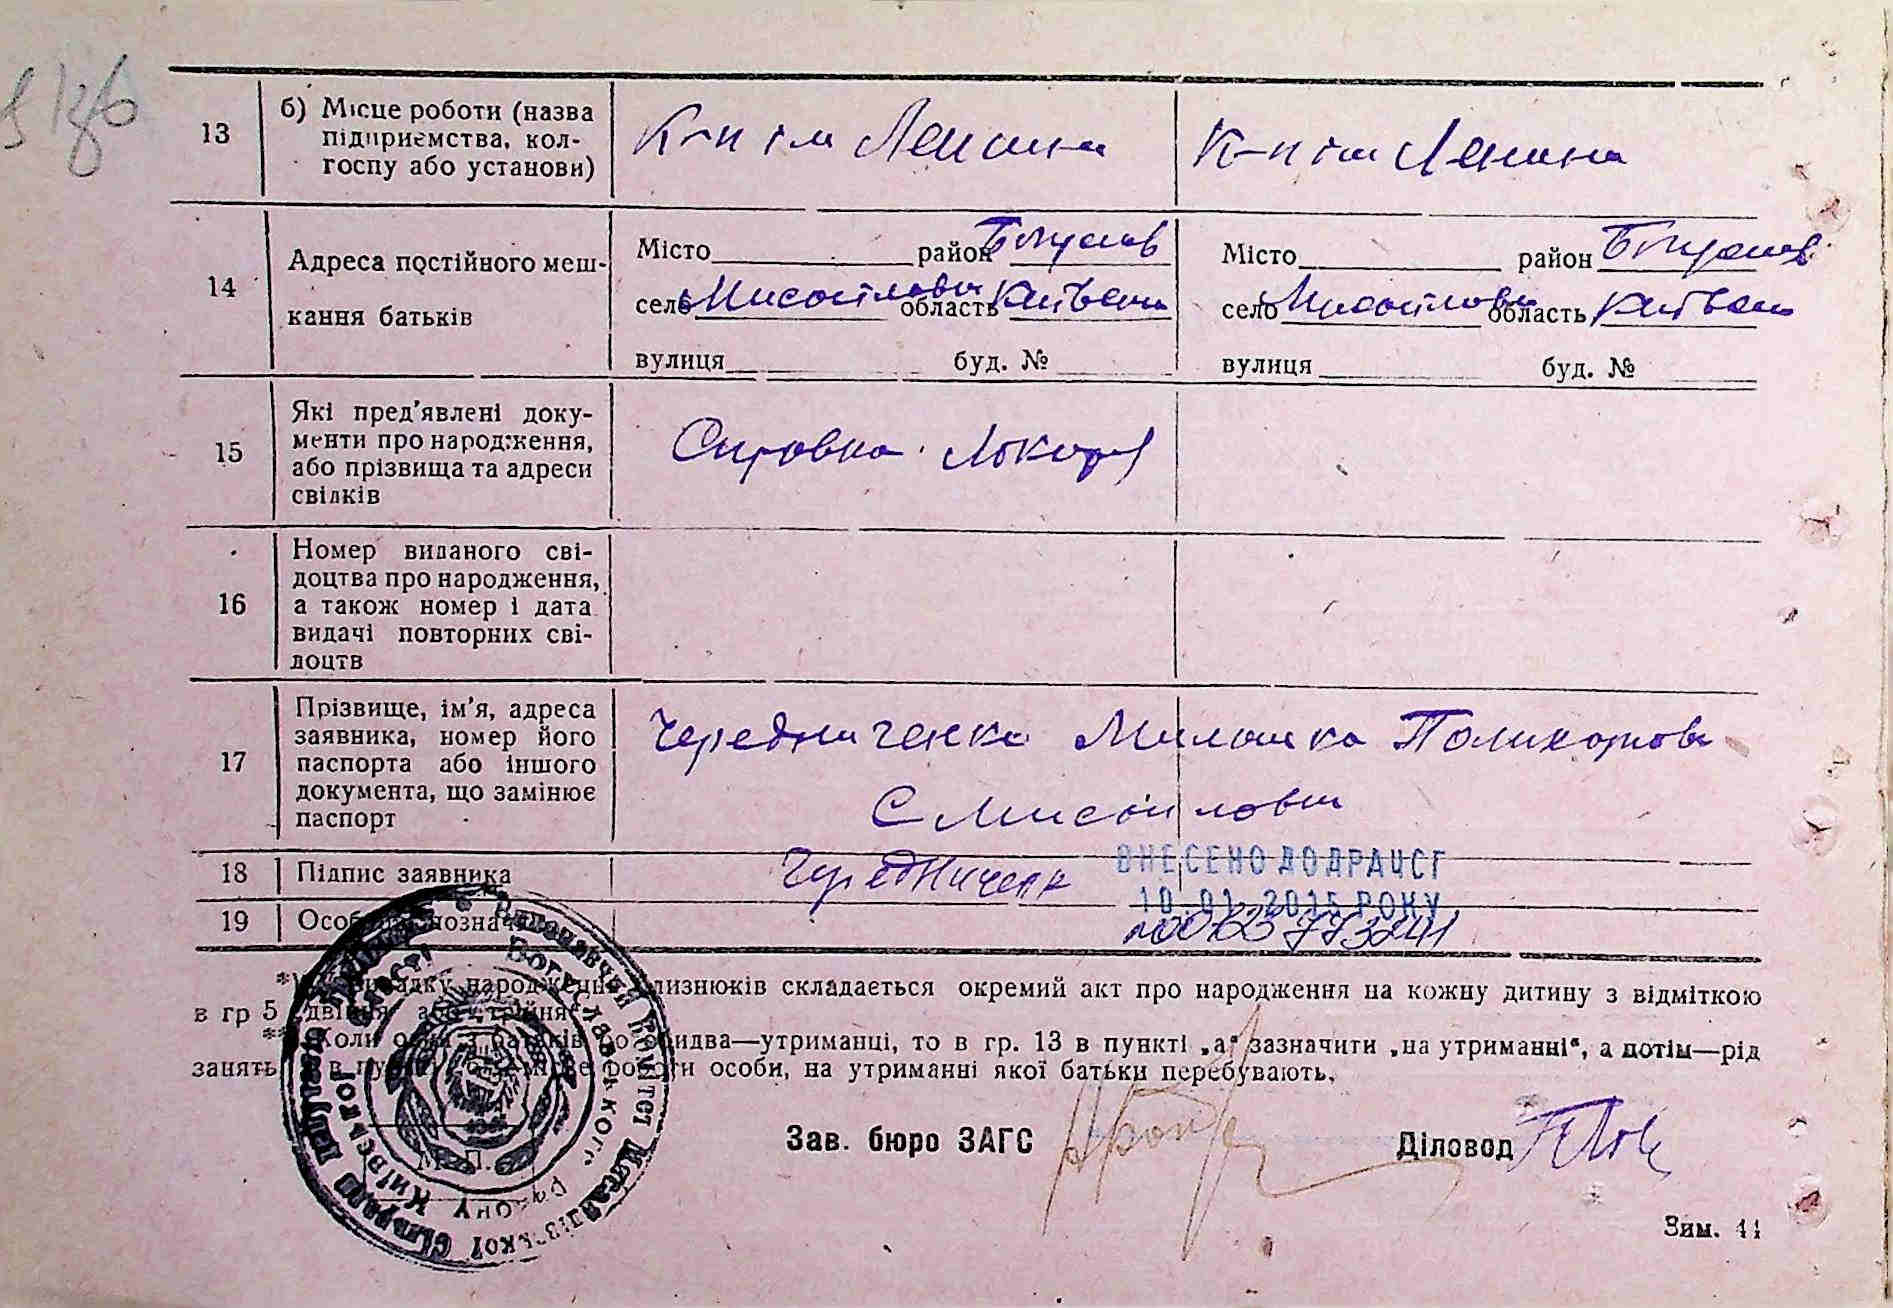 13
б) Місце роботи (назва
підприємства, кол-
госпу або установи)
К-п ім Леніна
К-п ім Леніна
14
Адреса постійного меш-
кання батьків
Місто район Богуслав
село Мисайлівки область Київська
вулиця буд. №
Місто район Богуслав
село Мисайлівки область Київська
вулиця буд. №
15
Які пред'явлені доку-
менти про народження,
або прізвища та адреси
свідків
Справка
16
Номер виданого сві-
доцтва про народження,
а також номер і дата
видачі повторних сві-
доцтв
17
Прізвище, ім'я, адреса
заявника, номер його
паспорта або іншого
документа, що замінює
паспорт
Чередниченко Поликарпов
С Мисайловки
18 Підпис заявника
Чередничен
ВНЕСЕНО ДО ДРАЦСГ
10 01 2015 РОКУ
19
*) У випадку народження близнюків складається окремий акт про народження на кожну дитину з відміткою
в гр 5 „двійня" або „трійня"
**) Коли один з батьків або обидва—утриманці, то в гр. 13 в пункті „а" зазначити „на утриманні", а потім—рід
занять, а в пункті роботи особи, на утриманні якої батьки перебувають.
Виконавчий Комітет Мисайлівської сільради депутатів
Богуславського району Київської області
М. П.
Зав. бюро ЗАГС
Діловод
Зим. 44